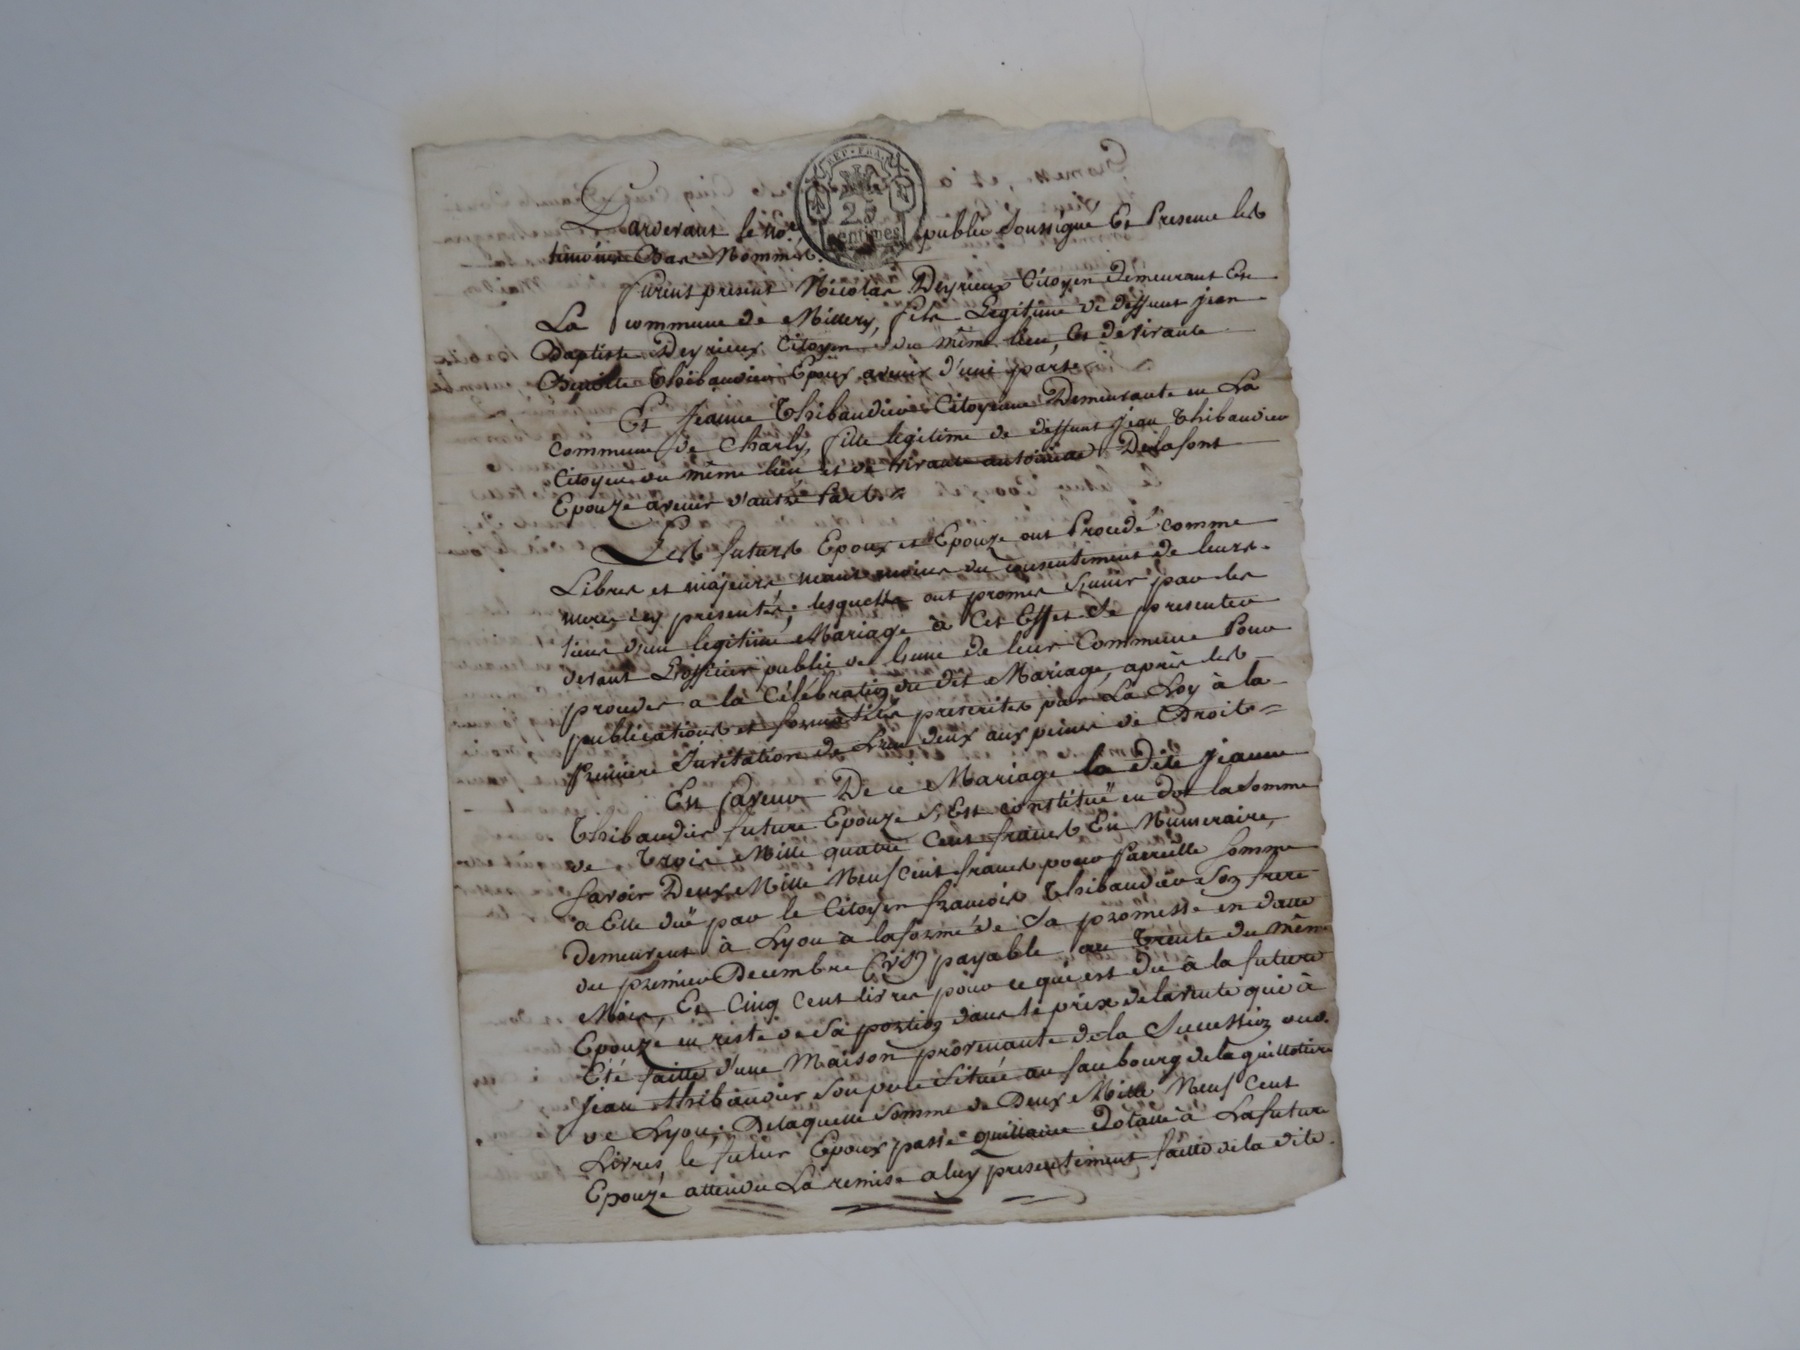 REP. FRA.
25
centimes
Pardevant le no.re public soussigné Et Presence les
temoins Bas Nommés.
furent present Nicolas Deyrieux Citoyen demeurant En
La commune de Millery, fils Legitime de deffunt jean
Baptiste Deyrieux Citoyen du même lieu, Et de vivante
Thibaudier Epoux avenir d'une part,
Et jeanne Thibaudier Citoyenne Demeurante en La
Commune de Charly, fille legitime de deffunt jean Thibaudier
Citoyen du même lieu et de vivante antoinne Delafont
Epouze avenir d'autre Part.
Les futurs Epoux et Epouze ont Procedé comme
Libres et majeurs neant moins du consentement de leurs
meres icy presentes, lesquels ont promis S'unir par les
liens d'un legitime Mariage à Cet Effet Se presenter
devant L'officier public de L'une de leur Commune Pour
proceder a la Célébration du dit Mariage, après les
publications et formalités prescrites par La Loy à la
premiere Invitation de L'un deux aux peines de Droit =
En faveur De ce Mariage la dite jeanne
Thibaudier future Epouze S'Est constituë en dot la somme
de Trois Mille quatre Cent francs En Numeraire,
Savoir Deux Mille Neuf Cent francs pour Parreille somme
a Elle duë par le Citoyen francois Thibaudier Son frere
Demeurent à Lyon a la forme de Sa promesse en datte
du premier Decembre payable au Trente du même
Mois, Et Cinq Cent livres pour ce qui est dû à la future
Epouze en reste de Sa portion dans le prix de la vente qui à
Eté faitte d'une Maison provenante de la Succession dud.
Jean thibaudier son pere Située au faubourg de la guillotiere
de Lyon; De laquelle Somme de Deux Mille Neuf Cent
Livres, le futur Epoux passe quittance Dotalle à La future
Epouze attendu La remise a luy presentement faitte de la dite